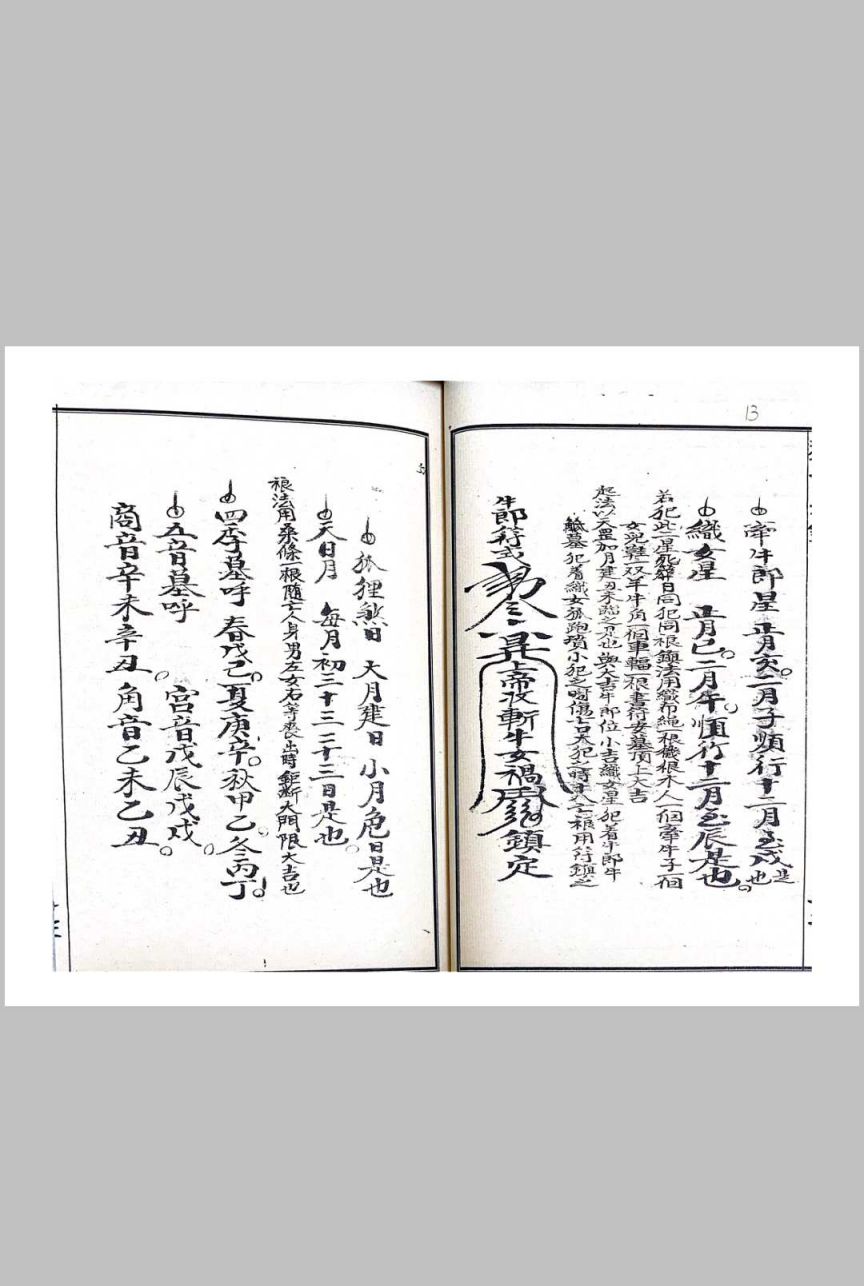 13
牵牛郎星 正月亥二月子順行十二月至戌是也
織女星 正月巳二月午順行十二月至辰是也
若犯此二星死葬日同犯同根鎮法用織布繩一根機根木人一個牽牛子一個
女鞋一双羊牛角一個車輻一根書符安墓頂上大吉
起法以天罡加月建丑未臨之是也與大吉牛郎位小吉織女星犯着牛郎牛
觝墓犯着織女狐跑墳小犯之時傷六吉大犯之時主人亡根用符鎮之
牛郎符式
上帝攻斬牛女禍
鎮定
狐狸煞日 大月建日 小月危日是也
天日月 每月初三十三二十三日是也
根法用桑條一根隨亡人身男左女右等喪出時鉅斷大門限大吉也
四季墓呼 春戊己夏庚辛秋甲乙冬丙丁
五音墓呼 宮音戊辰戊戌
商音辛未辛丑 角音乙未乙丑